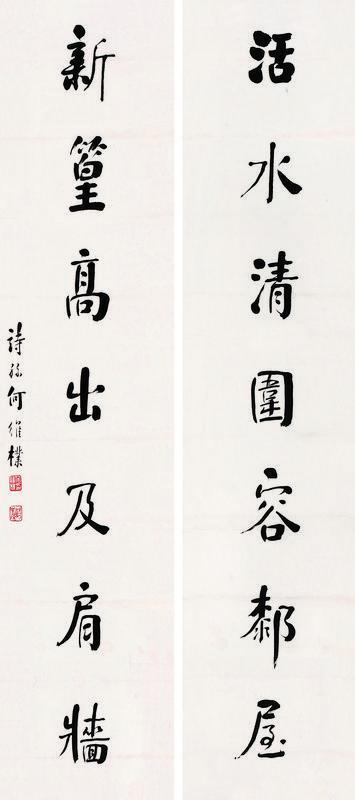 活水清圍容厀屋
新篁高出及肩牆
詩孫何維樸